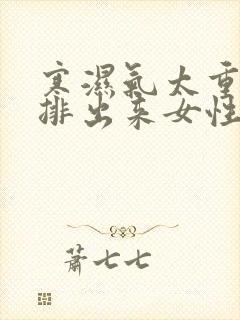 寒濕氣太重
排出來女性
蕭七七